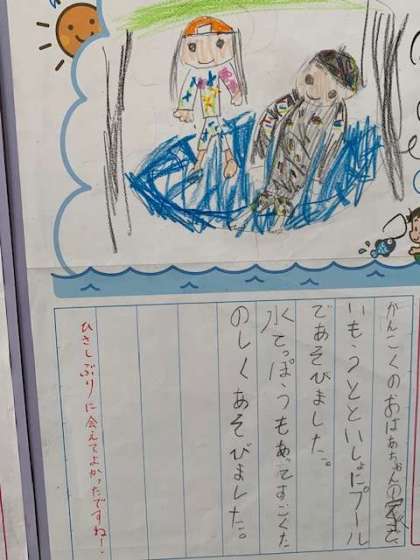 かんこくのおばあちゃんの家で
いもうとといっしょにプール
であそびました。
水てっぽうもあってすごくた
のしくあそびました。
ひさしぶりに会えてよかったですね!